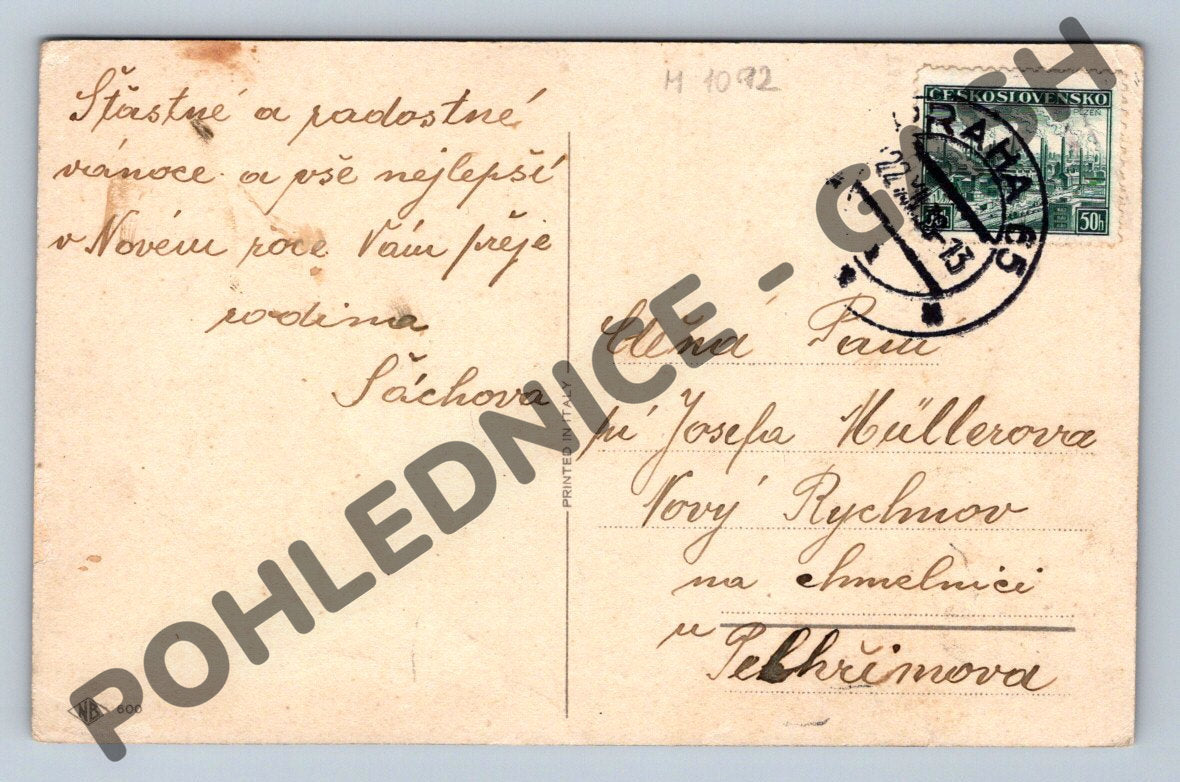 Šťastné a radostné
vánoce a vše nejlepší
v Novém roce Vám přeje
rodina
Šáchova
M 1092
ČESKOSLOVENSKO
PLZEŇ
50h
PRAHA 65
PRINTED IN ITALY
Ctěná Paní
pí Josefa Müllerova
Nový Rychnov
na chmelnici
u
Pelhřimova
NB 600
POHLEDNICE - G